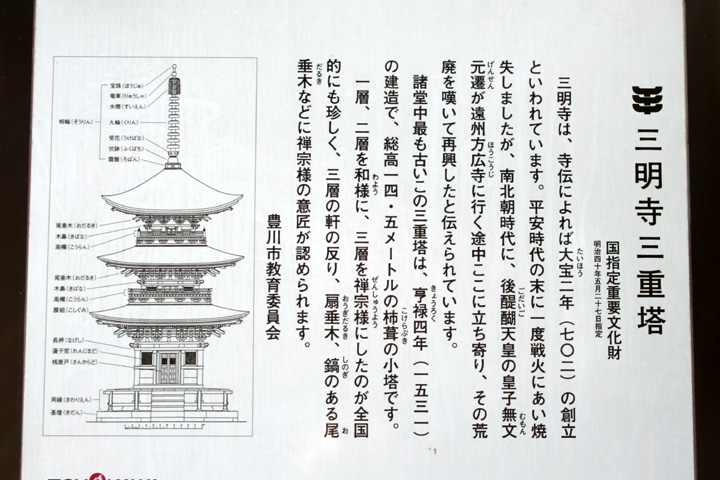 三明寺三重塔
国指定重要文化財
明治四十年五月二十七日指定
三明寺は、寺伝によれば大宝二年（七〇二）の創立
たいほう
といわれています。平安時代の末に一度戦火にあい焼
失しましたが、南北朝時代に、後醍醐天皇の皇子無文
ごだいご
むもん
元選が遠州方広寺に行く途中ここに立ち寄り、その荒
げんせん
ほうこうじ
廃を嘆いて再興したと伝えられています。
諸堂中最も古いこの三重塔は、亨禄四年（一五三一）
きょうろく
の建造で、総高一四・五メートルの杮葺の小塔です。
こけらぶき
一層、二層を和様に、三層を禅宗様にしたのが全国
わよう
ぜんしゅうよう
的にも珍しく、三層の軒の反り、扇垂木、鎬のある尾
おうぎだるき
しのぎ
お
垂木などに禅宗様の意匠が認められます。
だるき
豊川市教育委員会
宝珠（ほうじゅ）
竜車（りゅうしゃ）
水煙（すいえん）
相輪（そうりん）
九輪（くりん）
受花（うけばな）
伏鉢（ふくばち）
露盤（ろばん）
尾垂木（おだるき）
木鼻（きばな）
高欄（こうらん）
尾垂木（おだるき）
木鼻（きばな）
高欄（こうらん）
腰組（こしぐみ）
長押（なげし）
連子窓（れんじまど）
桟唐戸（さんからど）
周縁（まわりえん）
基壇（きだん）